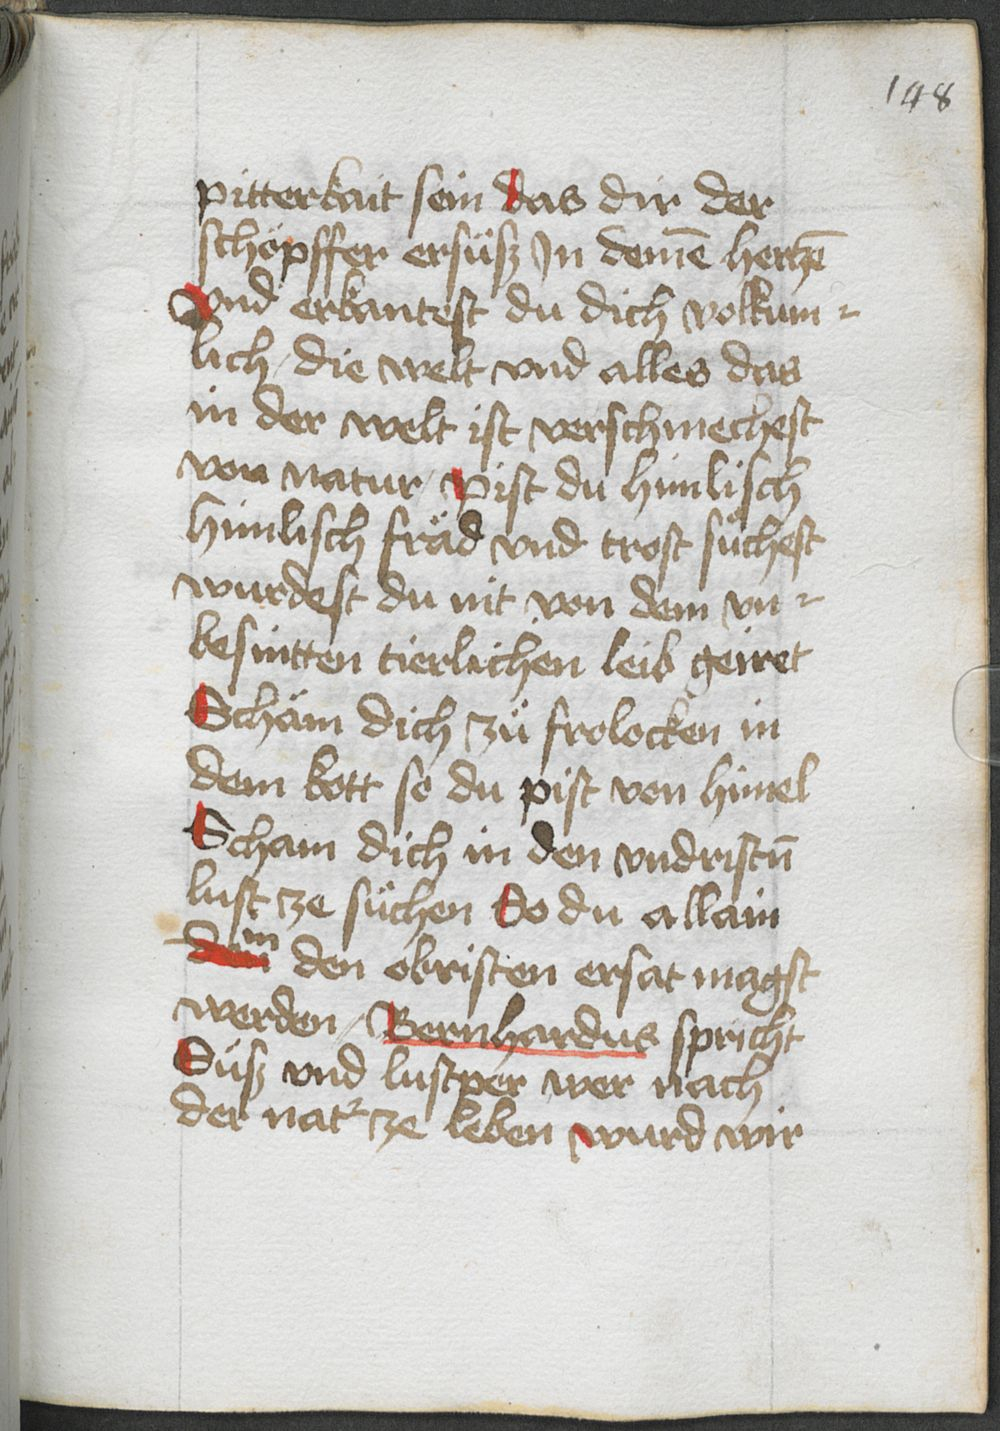 148
pitterkait sein das dir der
schöpffer ersüsz Jn deinē hertzē
vnd erkantest du dich volkum-
lich / die welt vnd alles das
in der welt ist verschmechest
von natur / pist du himlisch
himlisch fräd vnd trost süchest
wurdest du nit von dem vn-
besintten tierlichen leib geirret
Schäm dich zü frolocken in
dem kott so du pist von himel
Scham dich in den vndristn̄
lust ze süchen So du allain
in den obristen ersat magst
werden / Bernhardus spricht
Süsz vnd lustper wer nach
der natr ze leben wurd wir